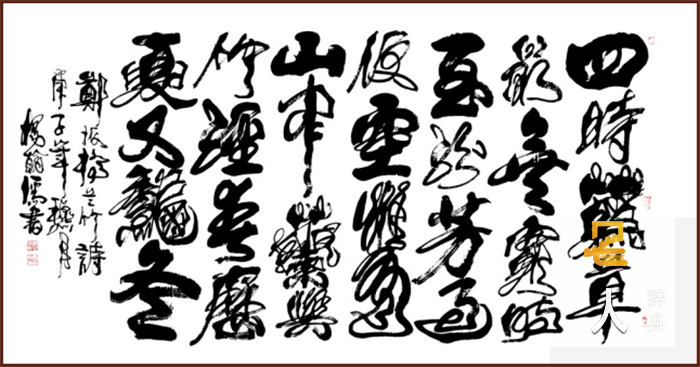 四時花草
最無窮時
到芬芳過
便空惟有
山中蘭與
竹經春歷
夏又龝冬
鄭板橋兰竹詩
庚子年臘月
楊翰儒書
名人
辞典